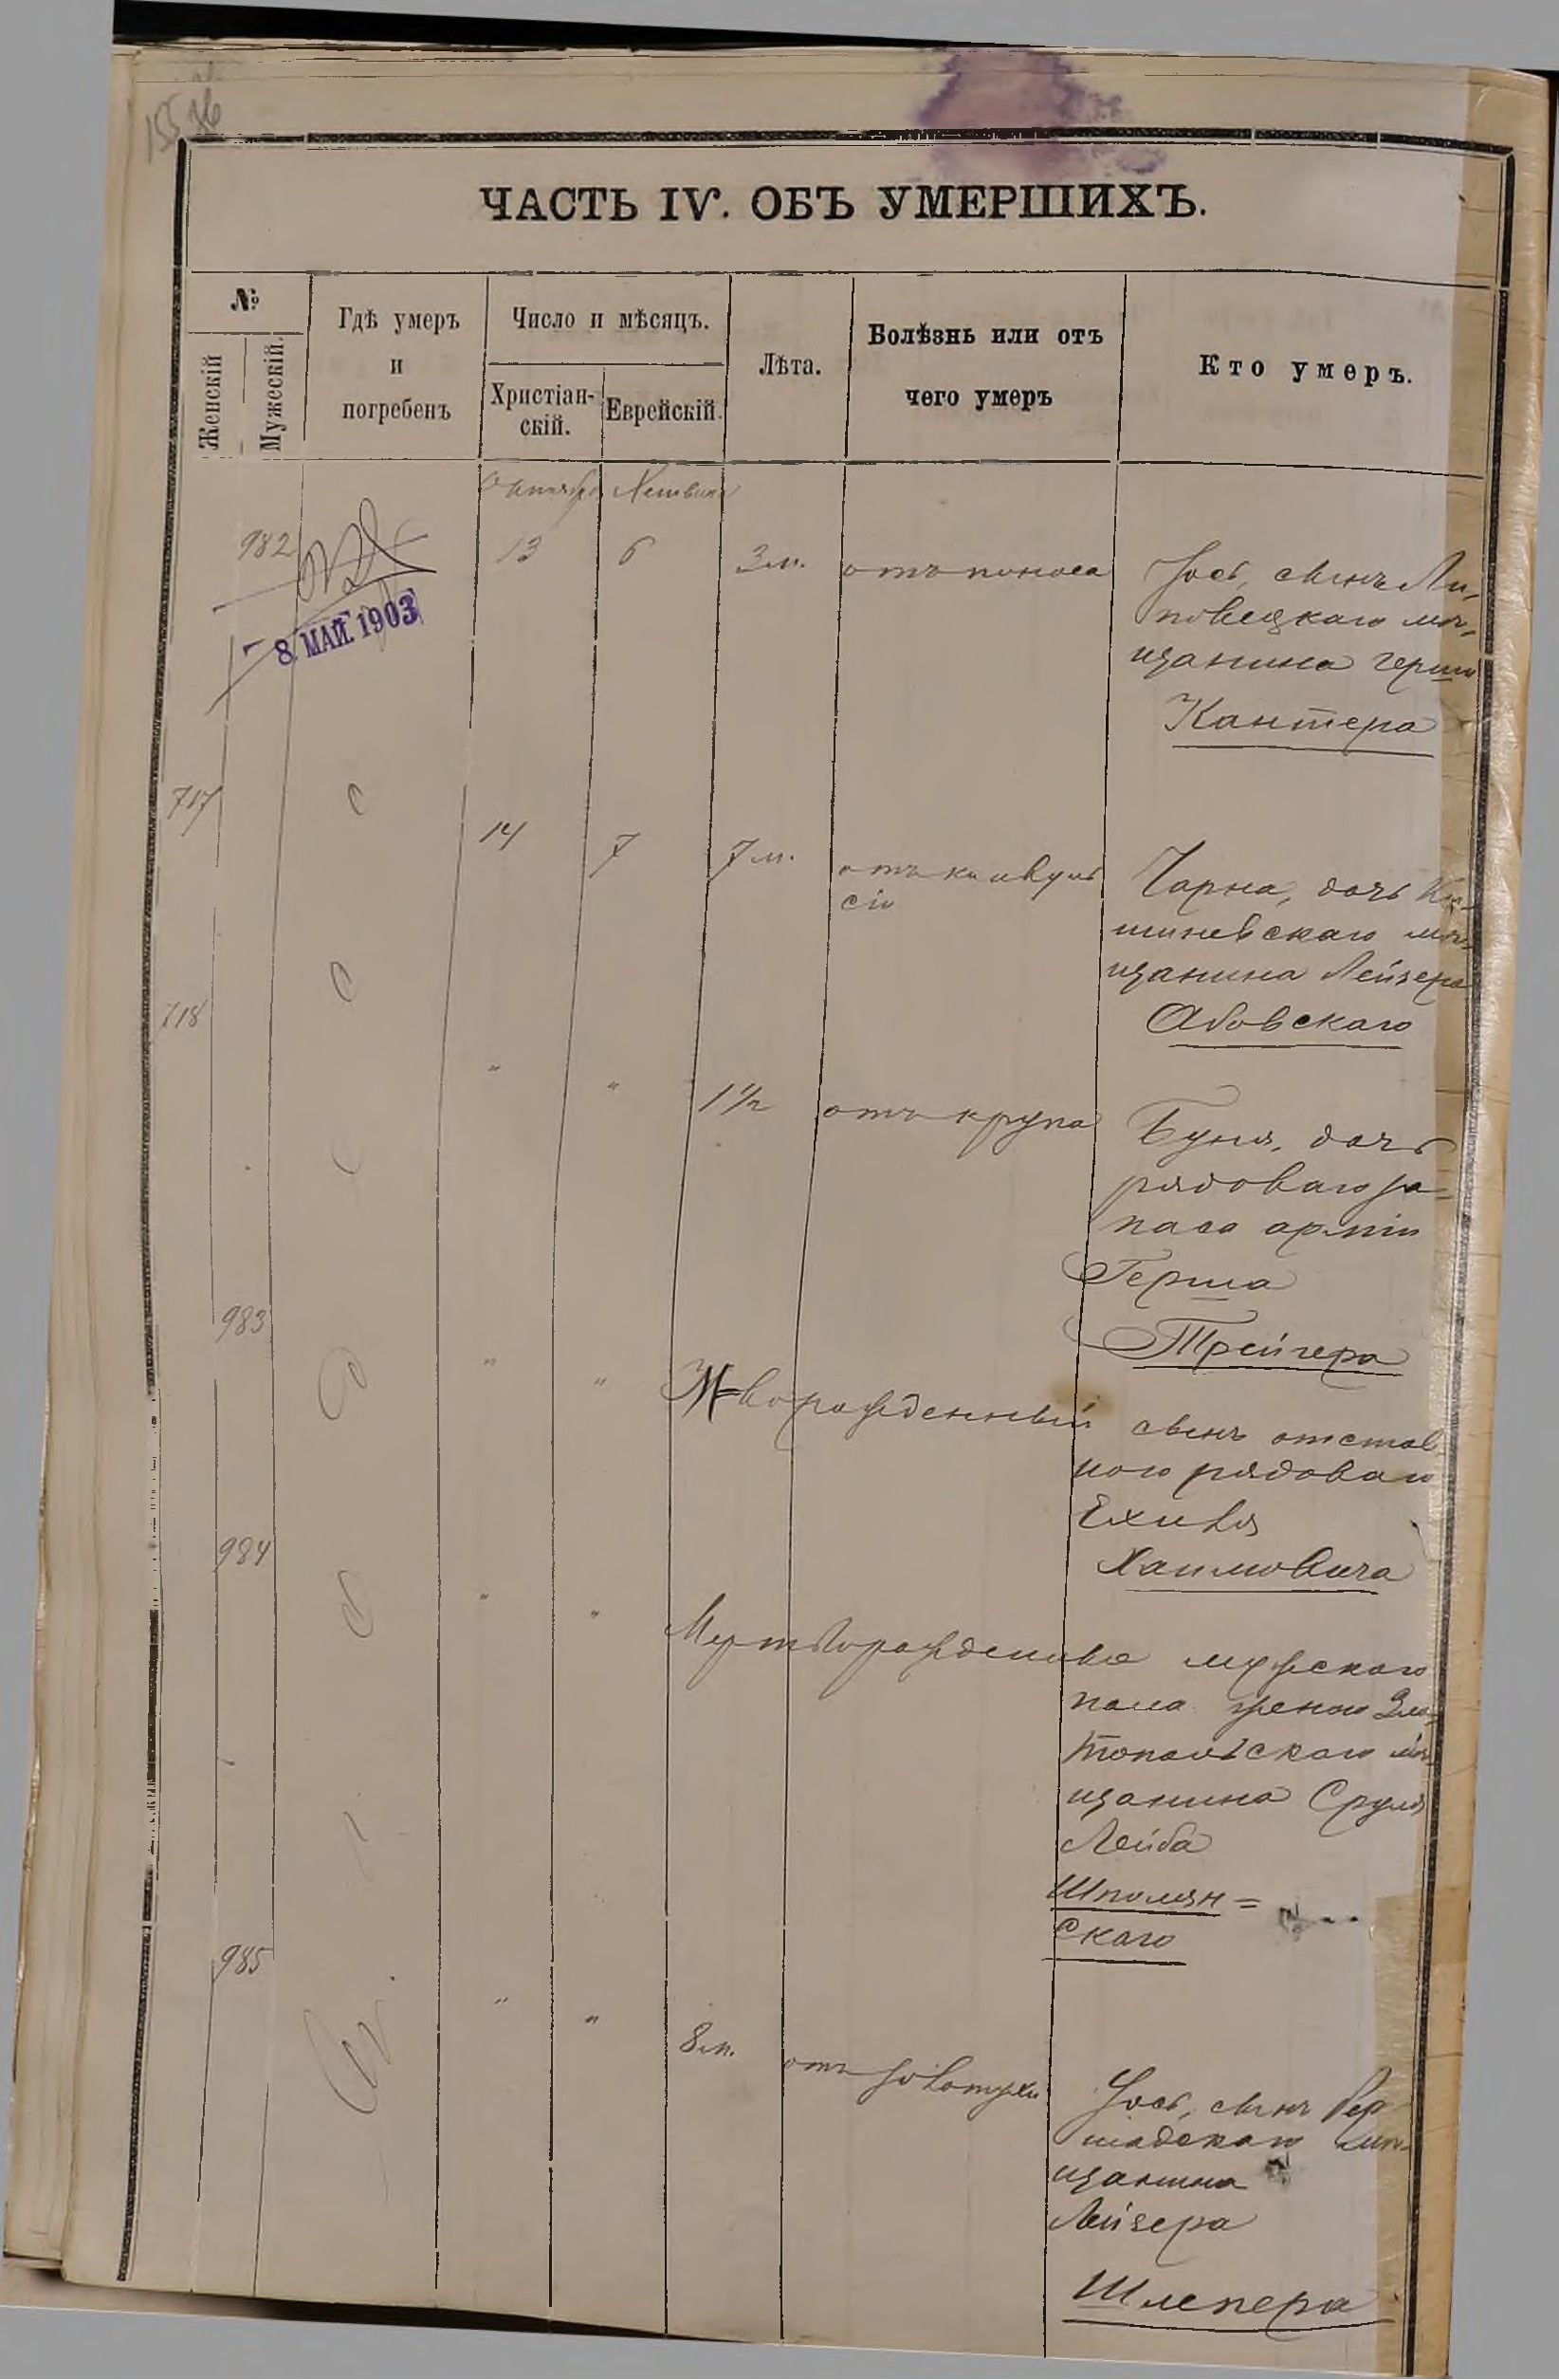 ЧАСТЬ IV. ОБЪ УМЕРШИХЪ.
№
Женскій
Мужескій.
Гдѣ умеръ
и
погребенъ
Число и мѣсяцъ.
Христіан-
скій.
Еврейскій.
Лѣта.
Болѣзнь или отъ
чего умеръ
Кто умеръ.
Октября Хешвина
982
8. МАЙ. 1903
13 6 3 м. отъ поноса
Іось, сынъ Ли-
повецкаго мѣ-
щанина Герша
Кантера
717
14 7 7 м. отъ конвуль
сіи
Чарна, дочь Ки-
шиневскаго мѣ-
щанина Лейзера
Абовскаго
718
" " 1 1/2 отъ крупа
Буня, дочь
рядоваго за-
паса арміи
Герша
Трейгера
983
" " рожденный сынъ отстав
ного рядоваго
Ехиля
Хаимовича
984
" " Мертворожденіе мужскаго
пола женою Зла-
топольскаго мѣ-
щанина Сруля
Лейба
Шполян=
скаго
985
" " 8 м. отъ
Іось, сынъ Бер
шадскаго мѣ-
щанина
Лейзера
Шлепера